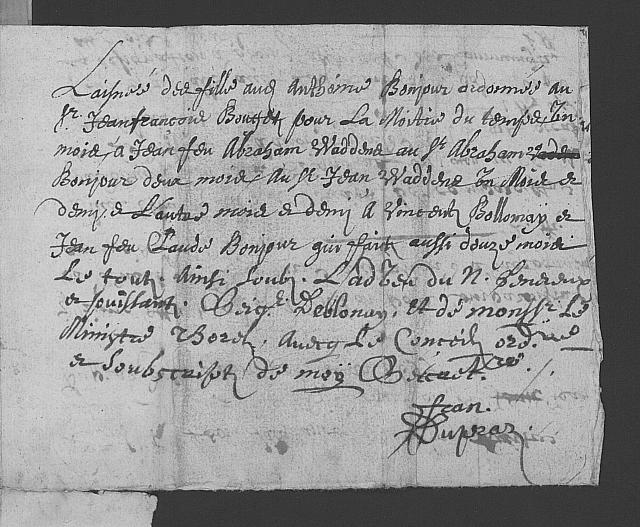 Laisnée des fille aud Anthéme Bonjour ordonnée au
Sr. Jeanfrancois pour La Moitie du temps Un
mois, a Jean feu Abraham Vaddens au Sr Abraham
Bonjour deux mois, Au Sr Jean Vaddens un Mois et
demi, e L'autre mois e demi A Vincent Bollomay et
Jean feu Claude Bonjour qui ffait aussi deux mois
Le tout. Ainsi soub. L'adveu du N. Genereux
et puissant. Seigr. Deblonay, et de monsr Le
Ministre Thorel, Avecq Le Conceil ordre
et soubscript de moy Secret.re
Jean.
Dupraz